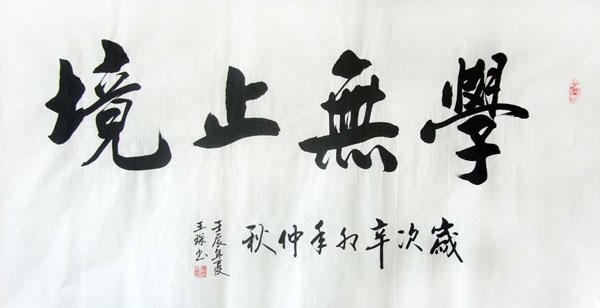 學無止境
歲次辛卯年仲秋
壬辰年夏
王琛书